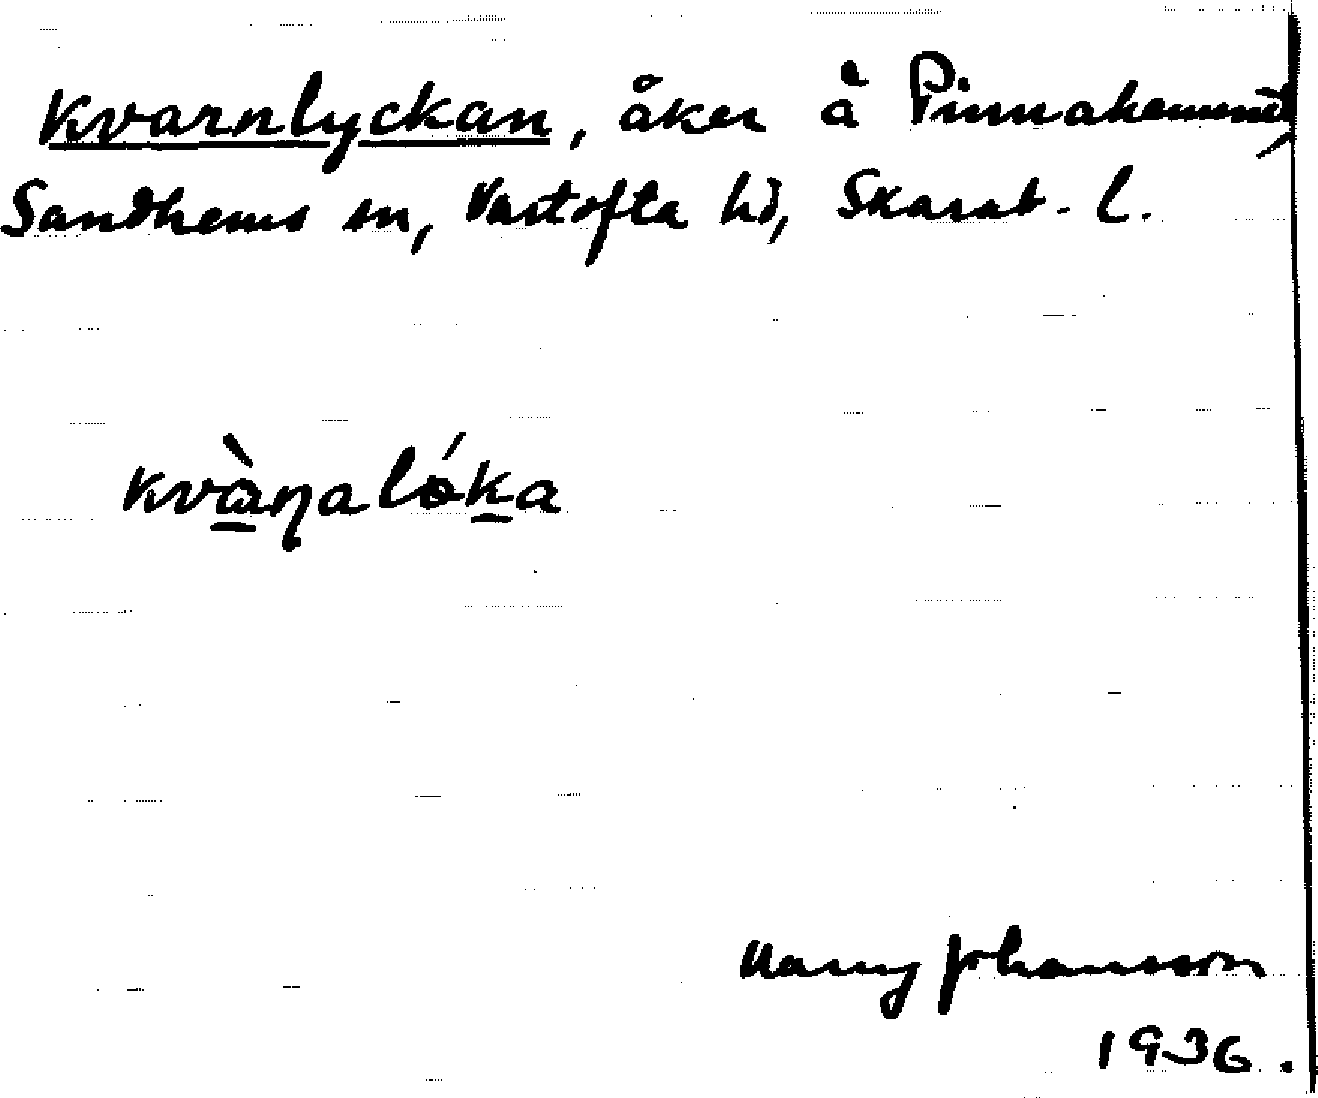 Kvarnlyckan, åker å Pinnahemmet,
Sandhems sn, Vartofta hd, Skarab. l.
kvàɳalóka
Harry Johansson
1936.